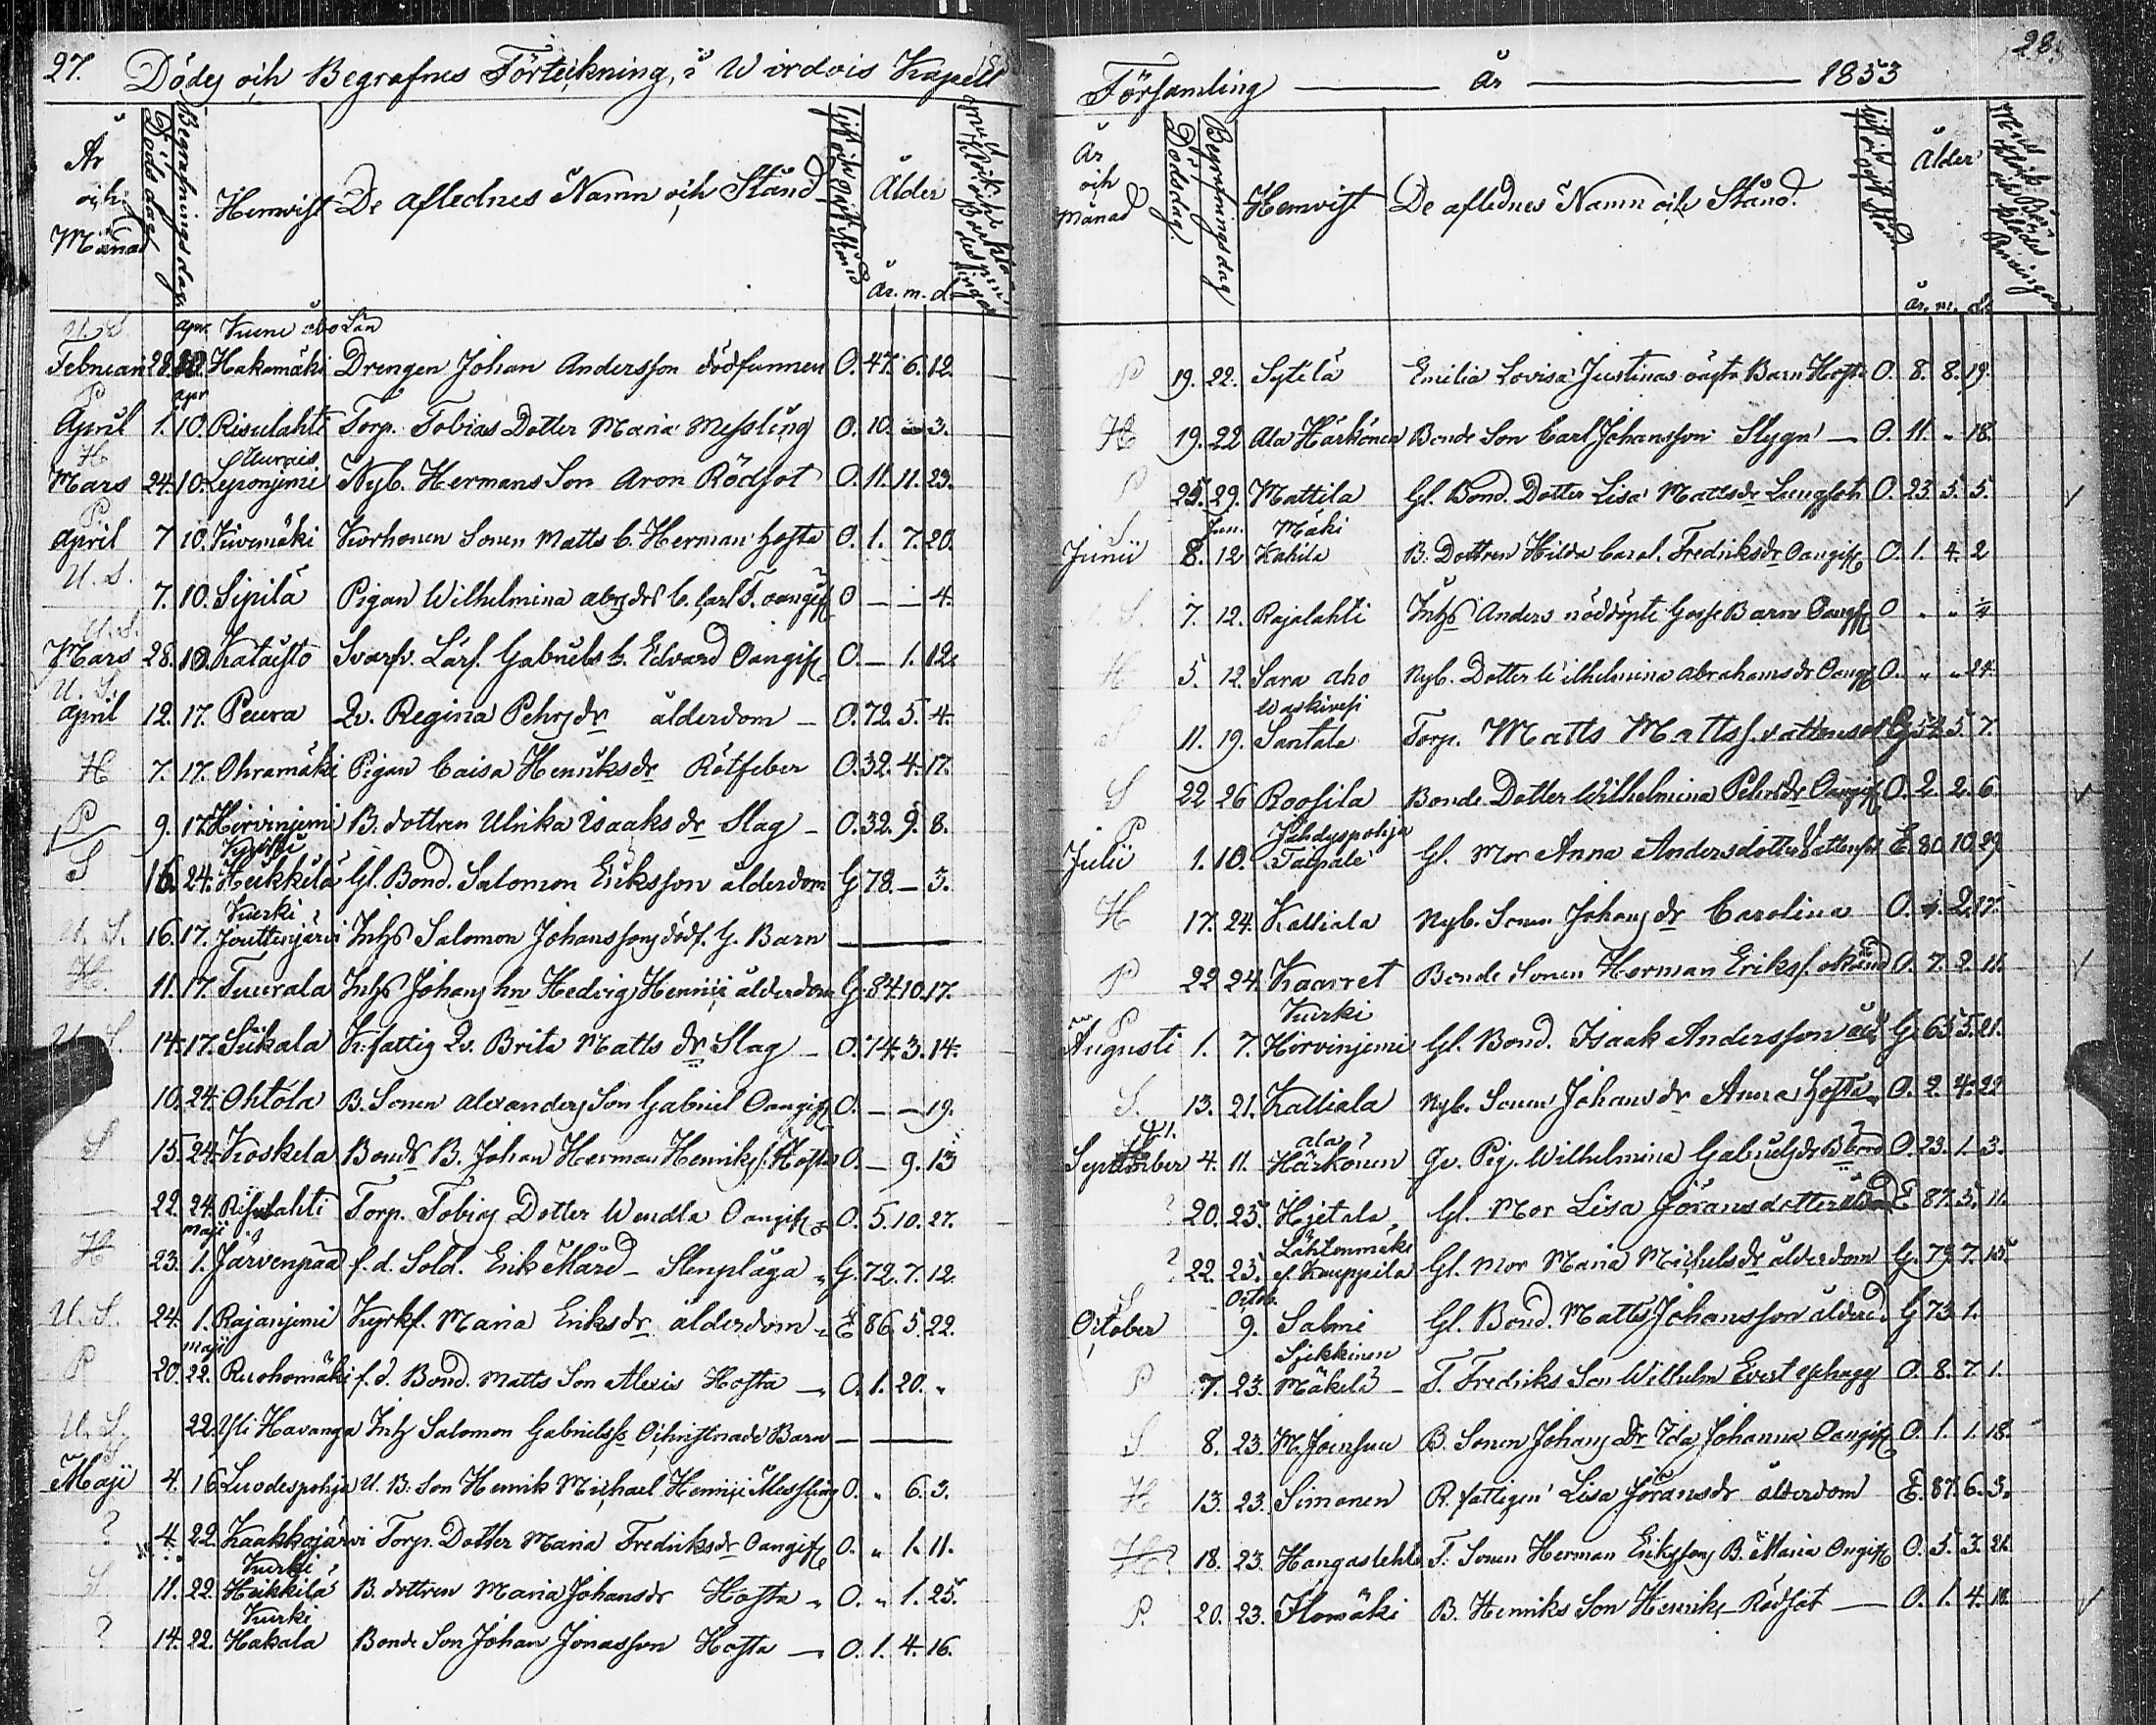 27. Döde och Begrafnes Förteckning, i Wirdois Kapell
År och Månad Dödsdag Begrafningsdag Hemvist De aflednes Namn och Stånd Ålder
År. m. d.
U. S. Apr. Åbo Län
Februari 28. Hakamäki Drengen Johan Andersson dödfunnen O. 47. 6. 12.
P apr
April 1. 10. Risulahti Torp. Tobias Dotter Maria Messling O. 10. 3.
H
Mars 24. 10. Leponjemi Nyb. Hermans Son Aron Rödsot O. 11. 11. 23.
P
April 7 10. Kivimäki Korhonen Sonen Matts b. Herman Hosta O. 1. 7. 20.
U. S.
7. 10. Sipilä Pigan Wilhelmina b. Carl F. oangif O — — 4.
U. S.
Mars 28. 10. Kataisto Svarfv. Lärl. Gabriels b. Edvard Oangif O. — 1. 12.
U. S.
April 12. 17. Peura Qv. Regina Pehrsdr ålderdom — O. 72. 5. 4.
H 7. 17. Ohramäki Pigan Caisa Henriksdr Rötfeber O. 32. 4. 17.
P 9. 17. Hirvinjemi B. dottren Ulrika Isaaksdr Slag — O. 32. 9. 8.
S 16. 24. Heikkilä Gl. Bond. Salomon Eriksson ålderdom G 78. — 3.
Kurki
U. S. 16. 17. Jouttenjärvi Inhs Salomon Johanssons dödf. G. Barn —
H. 11. 17. Tuurala Inhs Johans hu Hedvig Henrici ålderdom G. 84. 10. 17.
14. 17. Siikala K: fattig Qv. Brita Matts dr Slag — O. 74. 3. 14.
10. 24. Ohtola B. Sonen Alexanders Son Gabriel Oangif O. — — 19.
S 15. 24. Koskela Bonds B. Johan Herman Henrikss. Hosta O. — 9. 13
22. 24. Risulahti Torp. Tobias Dotter Wendla Oangif O. 5. 10. 27.
maji
H 23. 1. Järvenpää f. d. Sold. Erik Mård — Stenplåga G. 72. 7. 12.
U. S. 24. 1. Rajanjemi Kyrkf. Maria Eriksdr ålderdom E 86. 5. 22.
maji
P 20. 22. Ruohomäki f. d. Bond. Matts Son Alexis Hosta — O. 1. 20. "
U. S. 22. Yli Havanga Inhs Salomon Gabrielss Ochristnade Barn —
Maji 4. 16 Luodespohja U. B: Son Henrik Michael Henrici Messling O. " 6. 3.
? 4. 22. Kaakkojärvi Torp. Dotter Maria Fredriksdr Oangif O. " 1. 11.
Kurki
S 11. 22. Heikkilä B. dottren Maria Johansdr Hosta " O. " 1. 25.
Kurki
? 14. 22. Hakala Bonde Son Johan Jonasson Hosta — O. 1. 4. 16.
28.
Församling — År — 1853
År och Månad Dödsdag. Begrafningsdag Hemvist De aflednes Namn och Stånd. Ålder
År. m. d.
P 19. 22. Sytelä Emilia Lovisa Justinas oägta Barn Hosta O. 8. 8. 19.
H 19. 22 Ala Härkönen Bonde Son Carl Johansson Slygn — O. 11. " 18.
P 25. 29. Mattila Gl. Bond. Dotter Lisa Mattsdr Lungsot O. 23. 5. 5.
S Jun. Mäki
Junii 8. 12 Kahila B. Dottren Hilda Carol. Fredriksdr Oangif O. 1. 4. 2
S. 7. 12. Rajalahti Inhs Anders nöddöpte Gosse Barn Oangif O " " ¼
H 5. 12. Sara aho Nyb. Dotter Wilhelmina Abrahamsdr Oangif O. " " 24.
Waskivesi
S 11. 19. Santala Torp. Matts Mattss. vattensot G 52. 5. 7.
S 22 26 Roosila Bonde Dotter Wilhelmina Pehrsdr Oangif O. 2. 2. 6
P Jähdyspohja
Julii 1. 10. Taipale Gl. Mor Anna Andersdotter Vattensot E. 80. 10. 29
H 17. 24. Kalliala Nyb. Sonen Johans dr Carolina O. 2. 17.
P 22 24. Kaarret Bonde Sonen Herman Erikss. okänd O. 7. 2. 11.
P Kurki
Augusti 1. 7. Hirvinjemi Gl. Bond. Isaak Andersson G. 65. 5. 21.
S. 13. 21. Kalliala Nyb. Sonen Johansdr Anna Hosta O. 2. 4. 22
ala
September 4. 11. Härkönen Pig. Wilhelmina Gabrielsdr O. 23. 1. 3.
? 20. 25. Hjetala Gl. Mor Lisa Jöransdotter E 87. 5. 11.
Lähtenmäki
? 22. 25. Kauppila Gl. Mor Maria Michelsdr ålderdom G. 79. 7. 15.
S Octob.
October 9. Salmi Gl. Bond. Matts Johansson ålderd. G 73. 1.
P 7. 23. Mäkelä — T. Fredriks Son Wilhelm Evert O. 8. 7. 1.
S 8. 23. M. Joensuu B. Sonen Johans Dr Ida Johanna Oangif O. 1. 1. 18.
H 13. 23. Simonen R. fattigen Lisa Jöransdr ålderdom E. 87. 6. 3.
H ? 18. 23. Hangaslehto T: Sonen Herman Erikssons B. Maria Oangif O. 5. 3. 21.
P. 20. 23. Flomäki B. Henriks Son Henrik — Rödsot — O. 1. 4. 18.